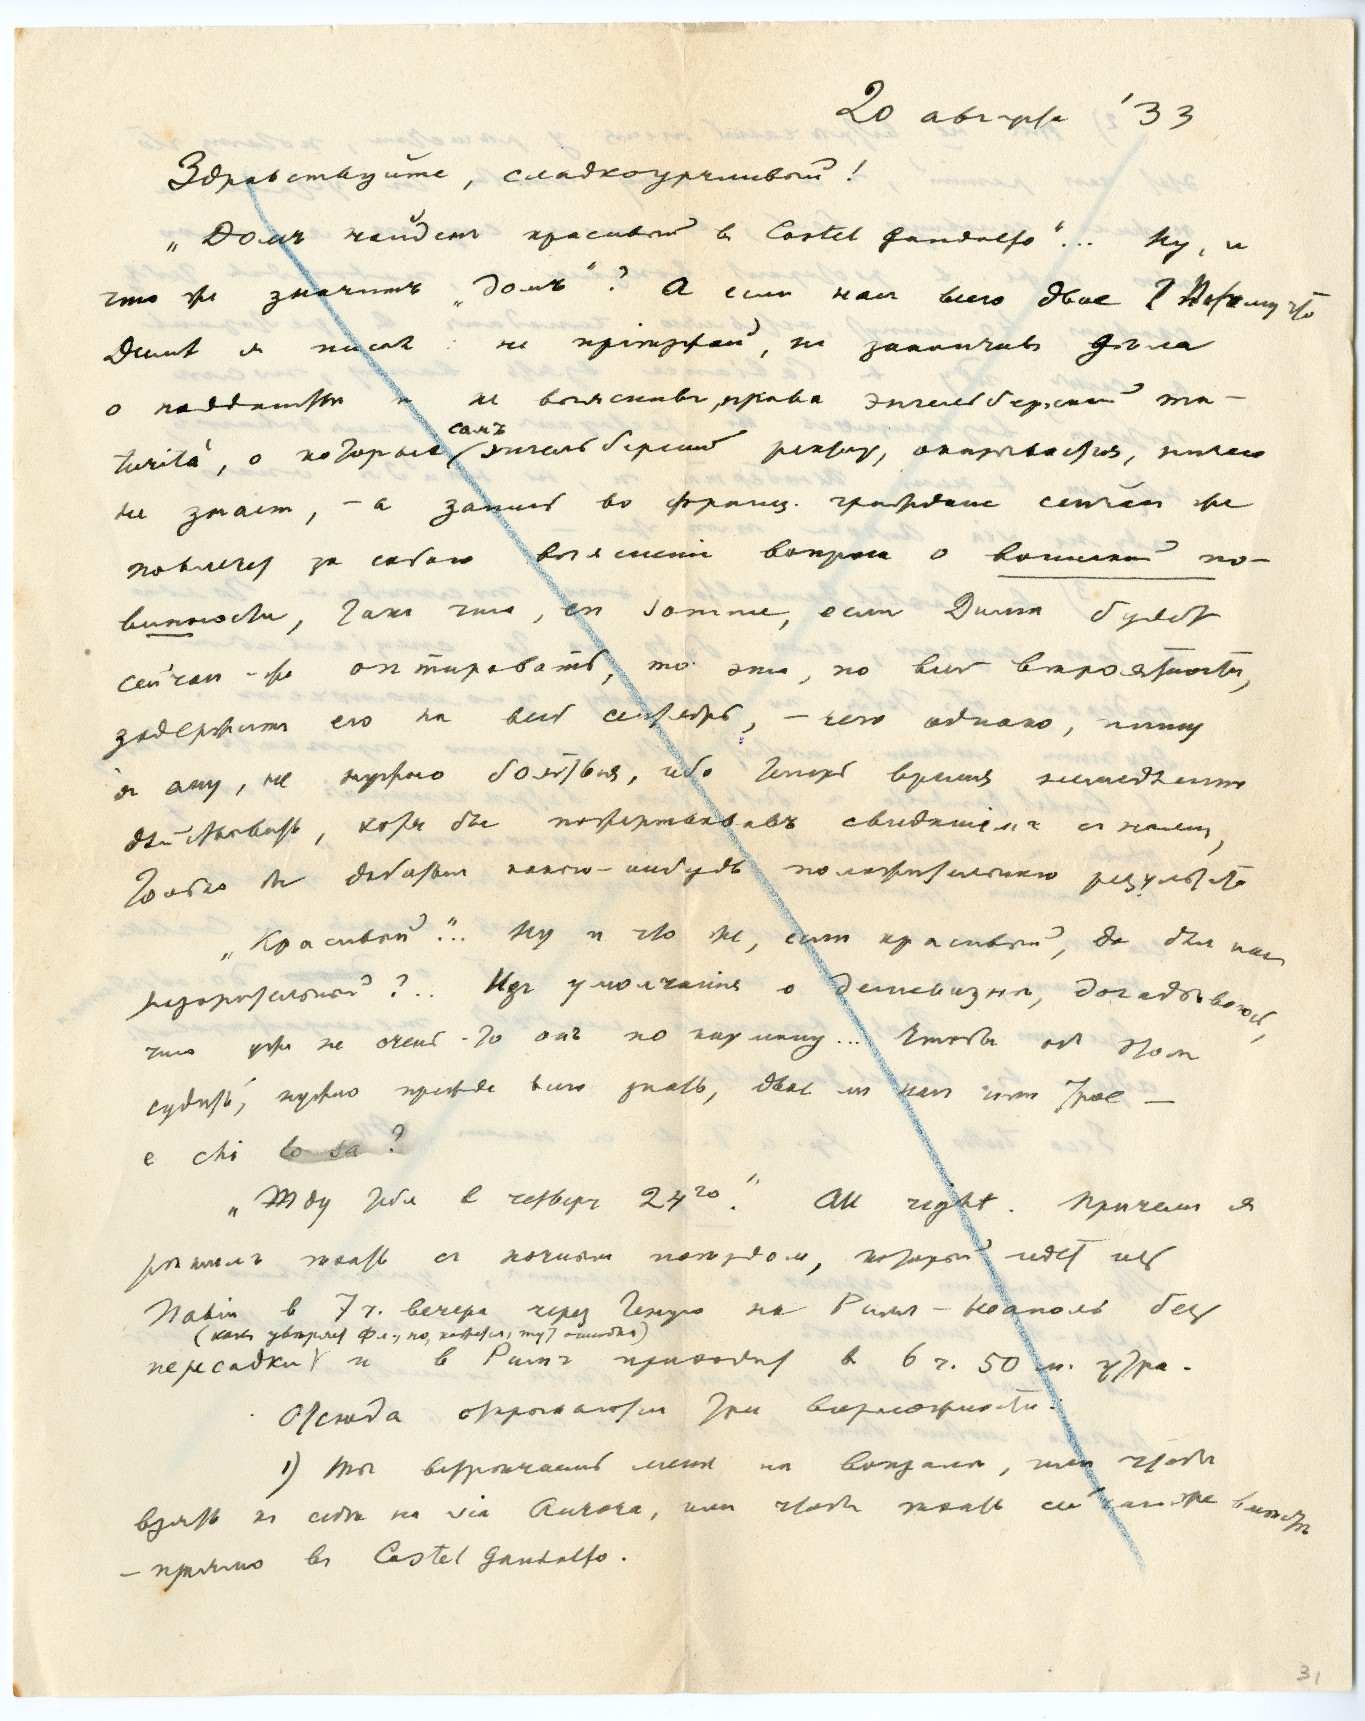 20 августа '33
Здравствуйте, сладкоурчливый!
„Домъ найденъ красивый въ Castel Gandolfo“... Ну, и
что же значитъ „домъ“? А если нас всего двое? Потому что
Димѣ я писал: не пріезжай, не закончив дѣла
о подданстве и не выяснивъ права энгельбергской ma-
turità, о которыхъ самъ энгельбергскій ректор, оказывается, ничего
не знает, – а запись во франц. гражданe сейчас же
повлечет за собою выясненіе вопроса о воинской по-
винности, так что, en somme, если Дима будет
сейчас-же оптировать, то это, по всей вероятности,
задержит его на весь сентябрь, – чего однако, пишу
я ему, не нужно бояться, ибо теперь время немедленно
дѣйствовать, хотя бы пожертвовавъ свиданіем с нами,
только бы добиться какого-нибудь положительного результата
„Красивый“... Ну и что же, если красивый, да для нас
разорительный?.. Изъ умолчанія о дешевизне, догадываюсь,
что уж не очень-то онъ по карману... Чтобы об этом
судить, нужно прежде всего знать, двое ли нас или трое –
e chi lo sa?
„Жду тебя в четверг 24го.“ All right. Причем я
решилъ ехать с ночным поездом, который идет из
Павіи в 7 ч. вечера через Геную на Рим – Неаполь без
(как уверяет Фл., но, кажется, тут ошибка)
пересадки и в Римъ приходит в 6 ч. 50 м. утра.
Отсюда открываются три вероятности:
1) Ты встречаешь меня на вокзале, или чтобы
взять к себе на via Aurora, или чтобы ехать сейчас же вместе
– прямо въ Castel Gandolfo.
31